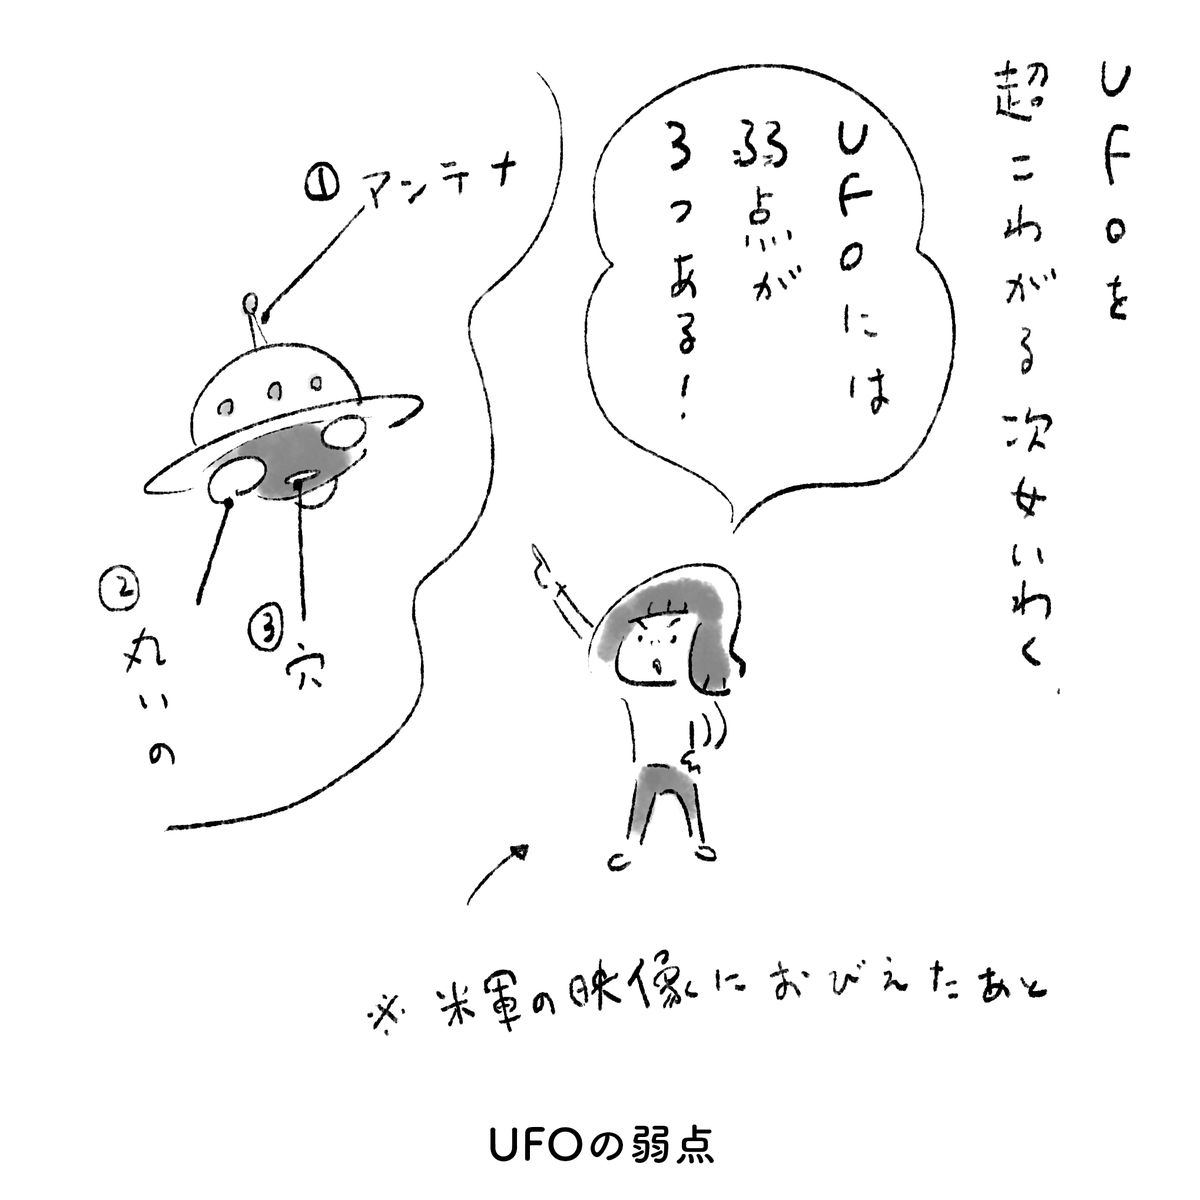 UFOを
超こわがる次女いわく
UFOには
弱点が
3つある!
①アンテナ
②丸いの
③穴
※米軍の映像におびえたあと
UFOの弱点